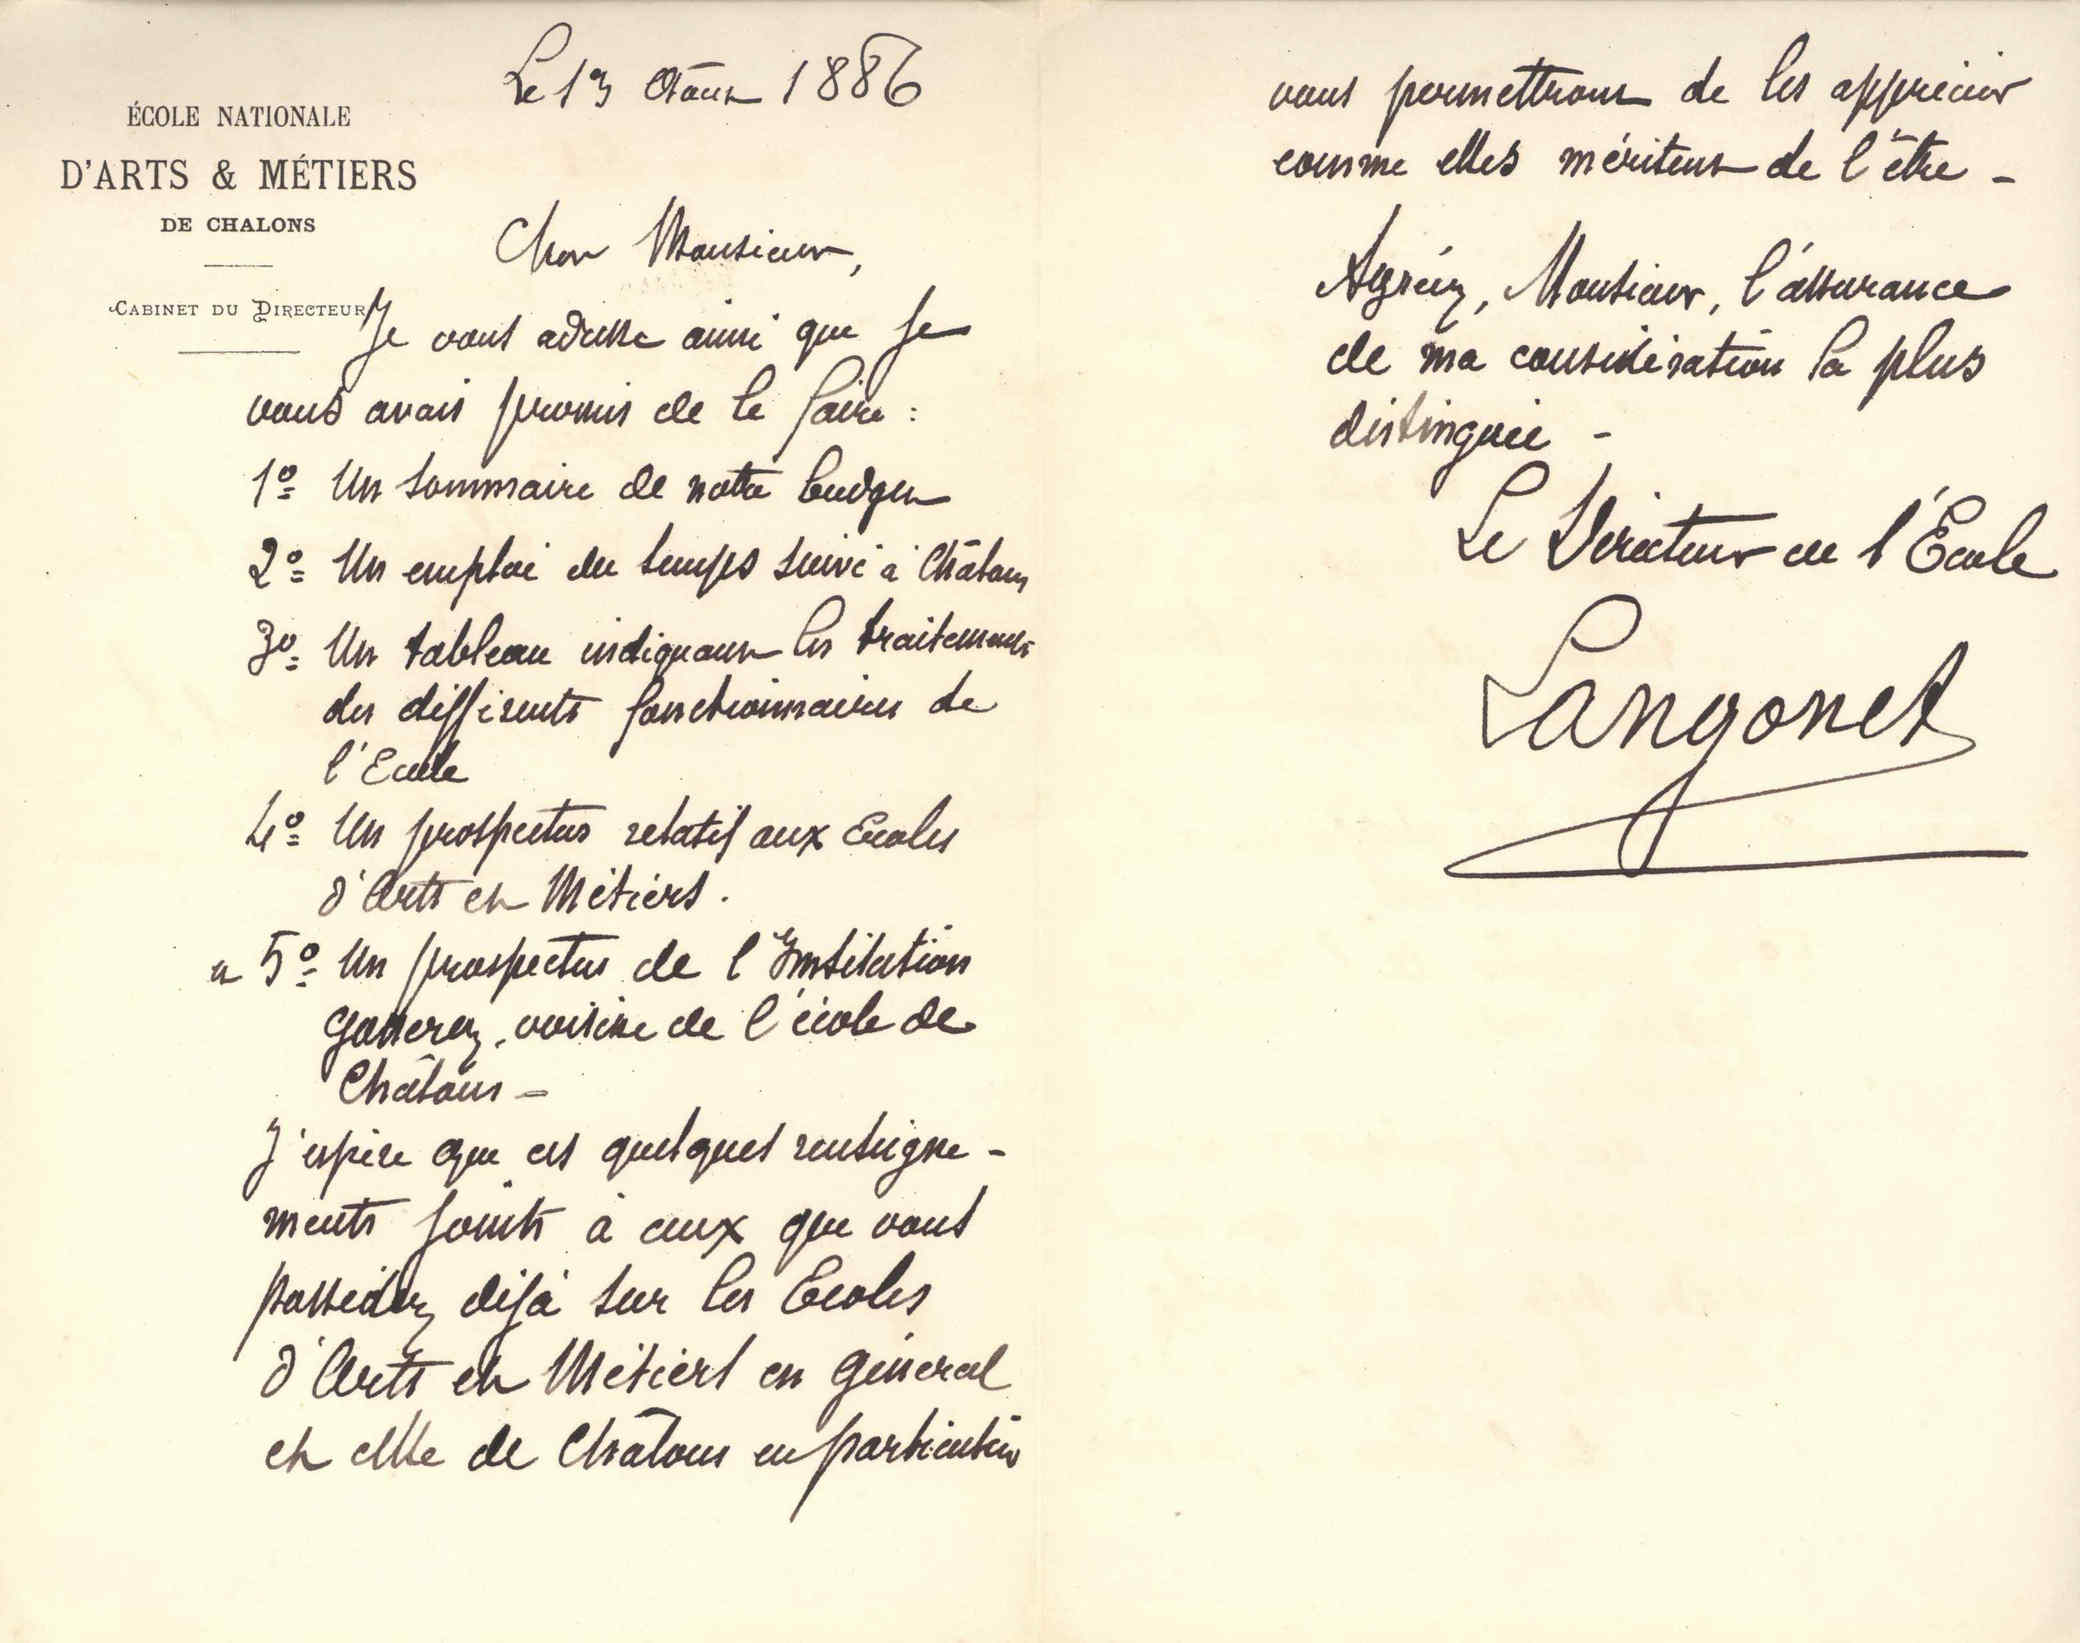 Le 13 Août 1886
ÉCOLE NATIONALE
D'ARTS & MÉTIERS
DE CHALONS
CABINET DU DIRECTEUR
Cher Monsieur,
Je vous adresse ainsi que je
vous avais promis de le faire :
1º Un sommaire de notre budget
2º Un emploi du temps suivi à Châlons
3º Un tableau indiquant les traitements
des différents fonctionnaires de
l'Ecole
4º Un prospectus relatif aux Ecoles
d'Arts et Métiers.
et 5º Un prospectus de l'Institution
voisine de l'école de
Châlons -
J'espère que ces quelques renseigne-
ments joints à ceux que vous
possédez déjà sur les Ecoles
d'Arts et Métiers en général
et celle de Châlons en particulier
vous permettront de les apprécier
comme elles méritent de l'être -
Agréez, Monsieur, l'assurance
de ma considération la plus
distinguée -
Le Directeur de l'École
Langonet